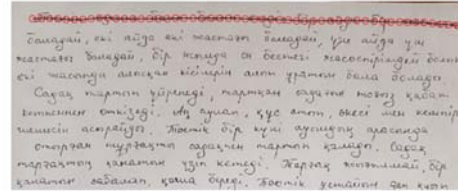 баладай, екі айда екі жастағы баладай, үш айда үш
жастағы баладай, бір жылда он бестегі жасөспірімдей болып
екі жасында алысқан кісілерін алып ұратын бала болады.
Садақ тартып үйренеді, тартқан садағын тоғыз қабат
кетпеннен өткізеді. Аң аулап, құс атып, әкесі мен кемпір
шешесін асырайды. Төстік бір күні ауылдың арасында
отырған шұрақты садақпен тартып қалады. Садақ
торғайдың қанатын үзіп кетеді. Торғай жығылмай, бір
қанатын сабалап, қаша береді. Төстік ұстаймын деп қуып